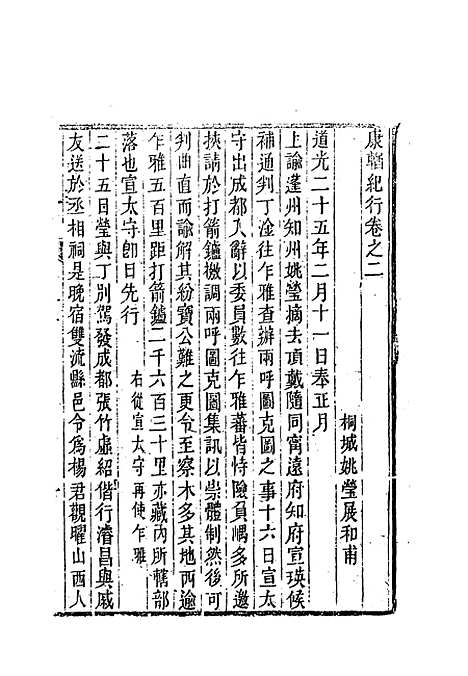 康輶紀行卷之二
桐城姚瑩展和甫
道光二十五年二月十一日奉正月
上諭蓬州知州姚瑩摘去頂戴隨同甯遠府知府宣瑛候
補通判丁淦往乍雅查辦兩呼圖克圖之事十六日宣太
守出成都入辭以委員數往乍雅蕃皆恃險負嵎多所邀
挾請於打箭鑪檄調兩呼圖克圖集訊以崇體制然後可
判曲直而諭解其紛寶公難之更令至察木多其地西逾
乍雅五百里距打箭鑪二千六百三十里亦藏內所轄部
落也宣太守卽日先行 右從宣太守再使乍雅
二十五日瑩與丁別駕發成都張竹虛紹偕行濬昌與戚
友送於丞相祠是晚宿雙流縣邑令爲楊君觀曜山西人